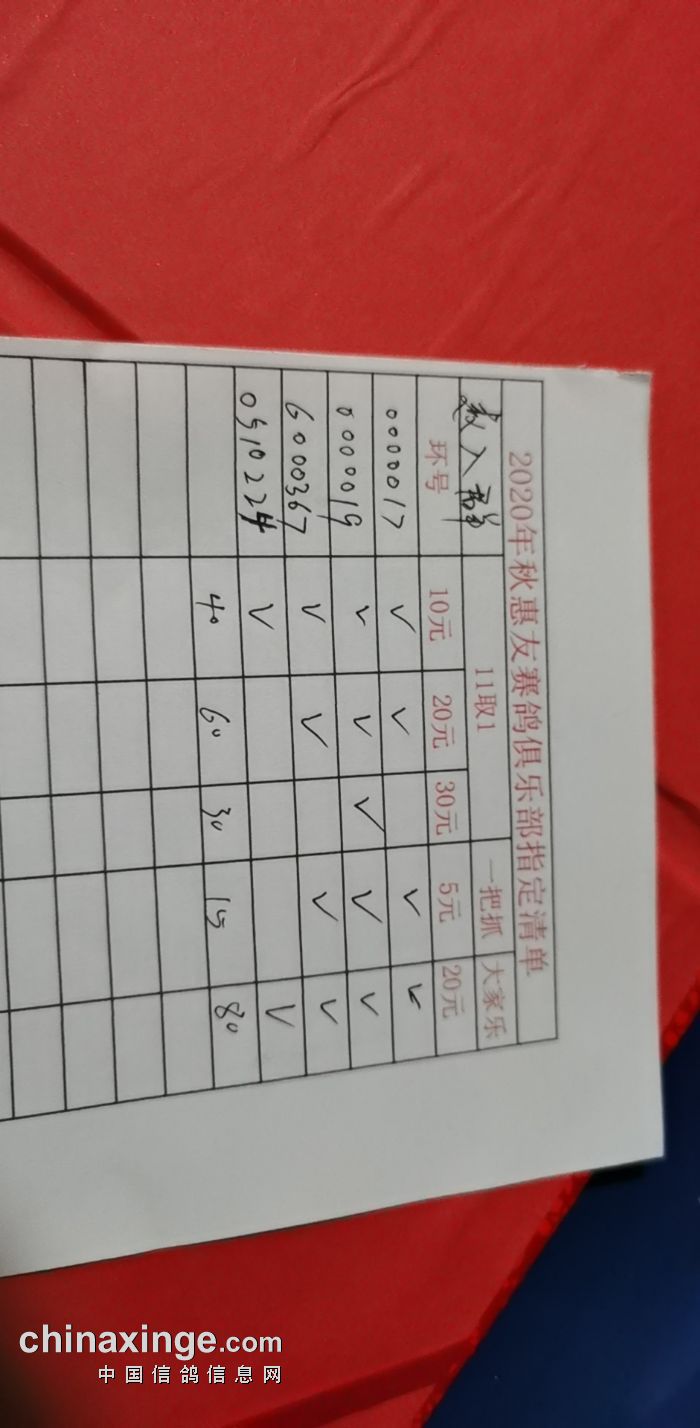 2020年秋惠友赛鸽俱乐部指定清单
11取1 一把抓 大家乐
环号 10元 20元 30元 5元 20元
0000017 ✓ ✓ ✓ ✓
0000019 ✓ ✓ ✓ ✓ ✓
6000367 ✓ ✓ ✓ ✓
0510224 ✓ ✓
40 60 30 15 80
chinaxinge.com
中国信鸽信息网